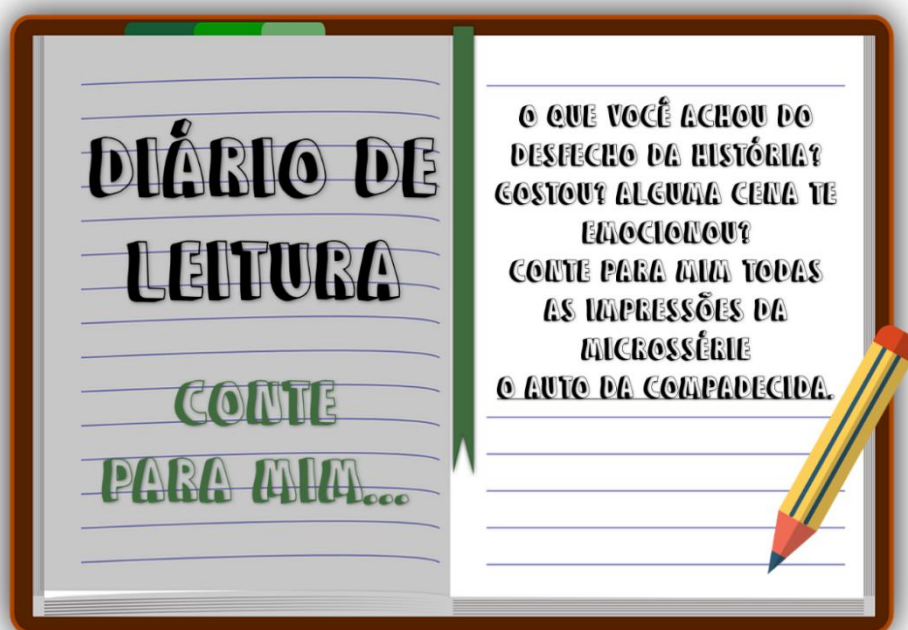 DIÁRIO DE
LEITURA
CONTE
PARA MIM...
O QUE VOCÊ ACHOU DO
DESFECHO DA HISTÓRIA?
GOSTOU? ALGUMA CENA TE
EMOCIONOU?
CONTE PARA MIM TODAS
AS IMPRESSÕES DA
MICROSSÉRIE
O AUTO DA COMPADECIDA.